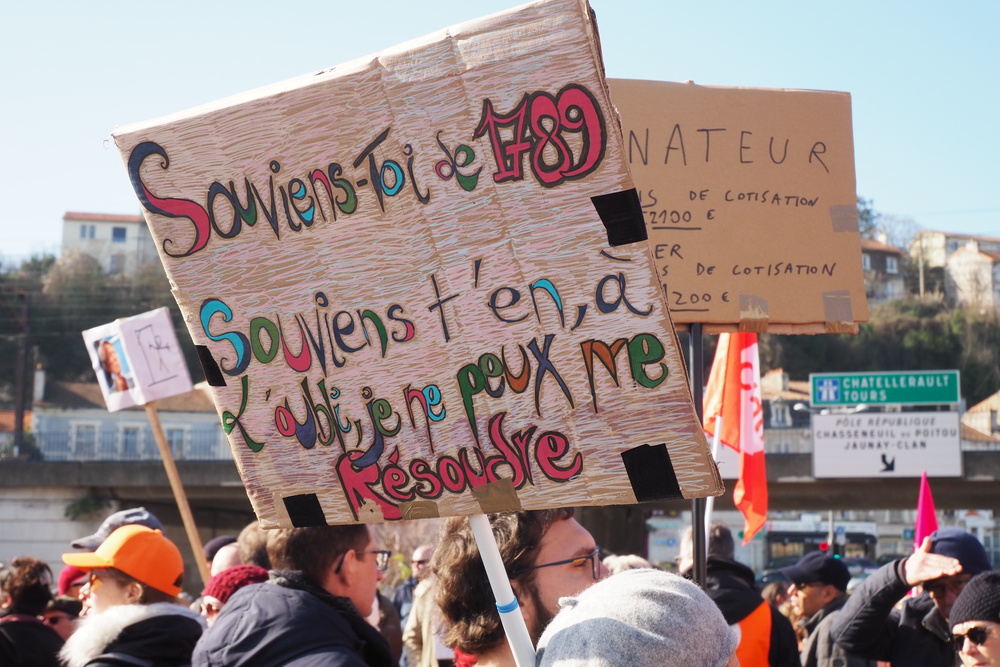 Souviens-Toi de 1789
Souviens t'en, à
L'oubli, je ne peux me
Résoudre
NATEUR
DE COTISATION
2100 €
ER
S DE COTISATION
1200 €
CHATELLERAULT
TOURS
PÔLE RÉPUBLIQUE
CHASSENEUIL DU POITOU
JAUNAY-CLAN